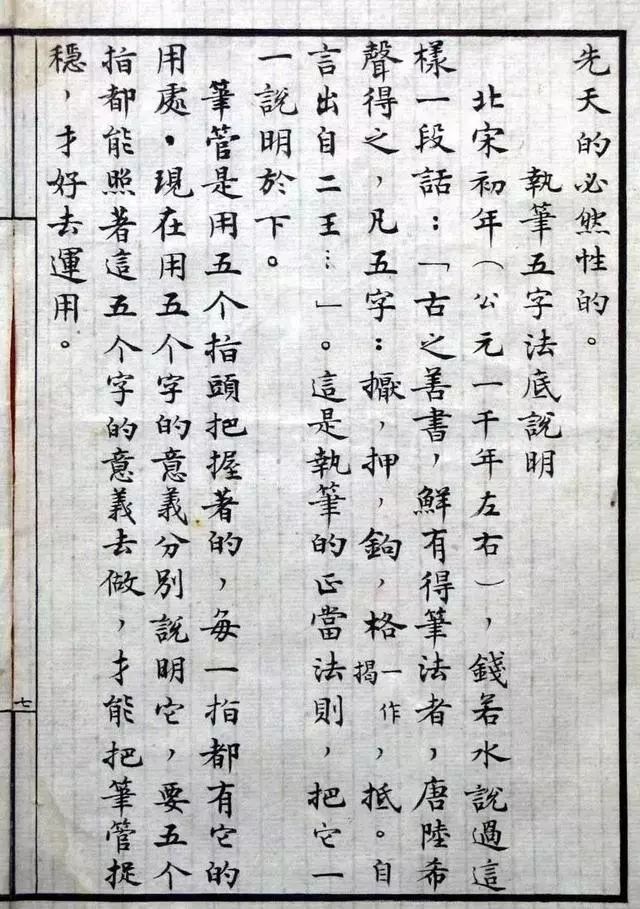 先天的必然性的。
執筆五字法底說明
北宋初年（公元一千年左右），錢若水說過這
樣一段話：「古之善書，鮮有得筆法者，唐陸希
聲得之，凡五字：擫，押，鉤，格一作揭，抵。自
言出自二王…」。這是執筆的正當法則，把它一
一說明於下。
筆管是用五个指頭把握著的，每一指都有它的
用處。現在用五个字的意義分別說明它，要五个
指都能照著這五个字的意義去做，才能把筆管捉
穩，才好去運用。
七